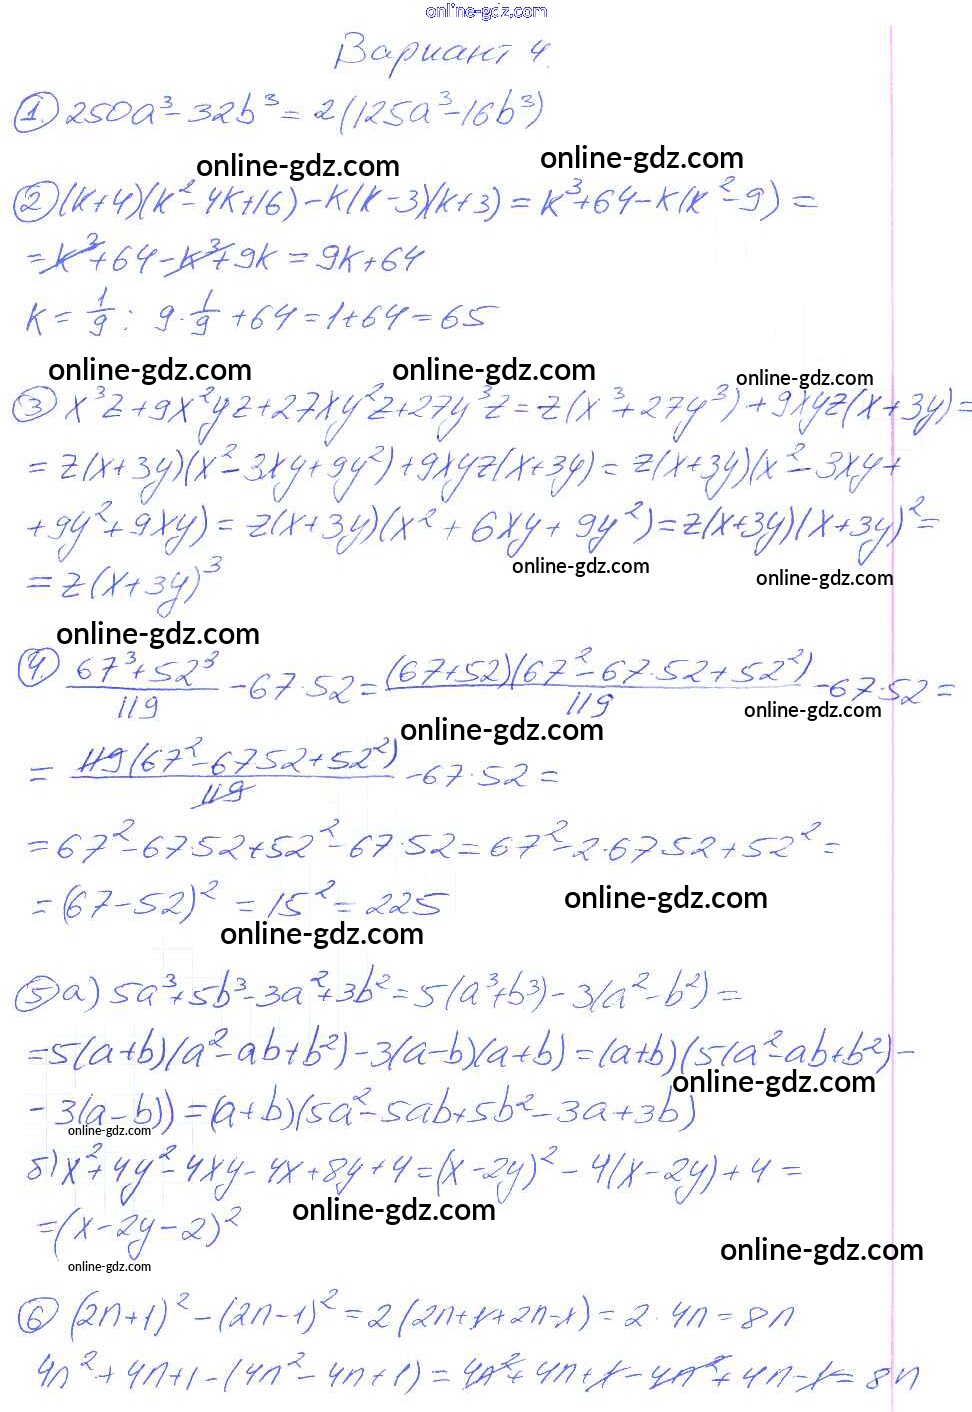 online-gdz.com
Вариант 4.
1. 250a³-32b³=2(125a³-16b³)
online-gdz.com online-gdz.com
2 (k+4)(k²-4k+16)-k(k-3)(k+3)=k³+64-k(k²-9)=
=k³+64-k³+9k=9k+64
k=1/9: 9·1/9+64=1+64=65
online-gdz.com online-gdz.com online-gdz.com
3 x³z+9x²yz+27xy²z+27y³z=z(x³+27y³)+9xyz(x+3y)=
=z(x+3y)(x²-3xy+9y²)+9xyz(x+3y)=z(x+3y)(x²-3xy+
+9y²+9xy)=z(x+3y)(x²+6xy+9y²)=z(x+3y)(x+3y)²=
online-gdz.com online-gdz.com
=z(x+3y)³
online-gdz.com
4. (67³+52³)/119-67·52=(67+52)(67²-67·52+52²)/119-67·52=
online-gdz.com online-gdz.com
=119(67²-6752+52²)/119-67·52=
=67²-67·52+52²-67·52=67²-2·6752+52²=
=(67-52)²=15²=225
online-gdz.com
online-gdz.com
5 а) 5a³+5b³-3a²+3b²=5(a³+b³)-3(a²-b²)=
=5(a+b)(a²-ab+b²)-3(a-b)(a+b)=(a+b)(5(a²-ab+b²)-
online-gdz.com
-3(a-b))=(a+b)(5a²-5ab+5b²-3a+3b)
online-gdz.com
б) x²+4y²-4xy-4x+8y+4=(x-2y)²-4(x-2y)+4=
online-gdz.com
=(x-2y-2)²
online-gdz.com
online-gdz.com
6 (2n+1)²-(2n-1)²=2(2n+1+2n-1)=2·4n=8n
4n²+4n+1-(4n²-4n+1)=4n²+4n+1-4n²+4n-1=8n